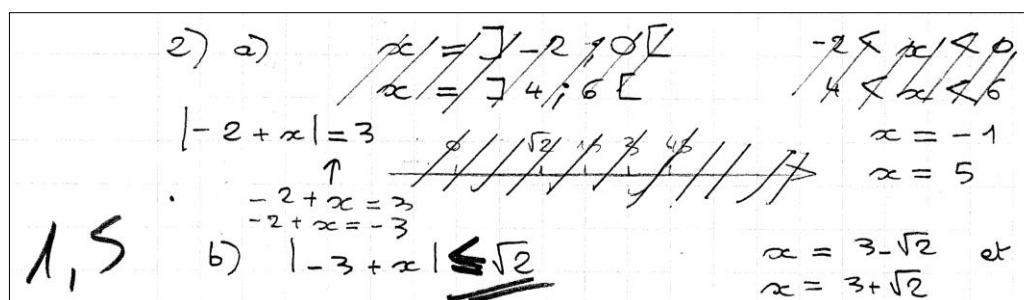 2) a) x = ]-2 ; 0[ -2 < x < 0
x = ]4 ; 6[ 4 < x < 6
|-2 + x| = 3 x = -1
0 √2 3 x = 5
↑
-2 + x = 3
-2 + x = -3
1,5
b) |-3 + x| ≤ √2 x = 3-√2 et
x = 3+√2